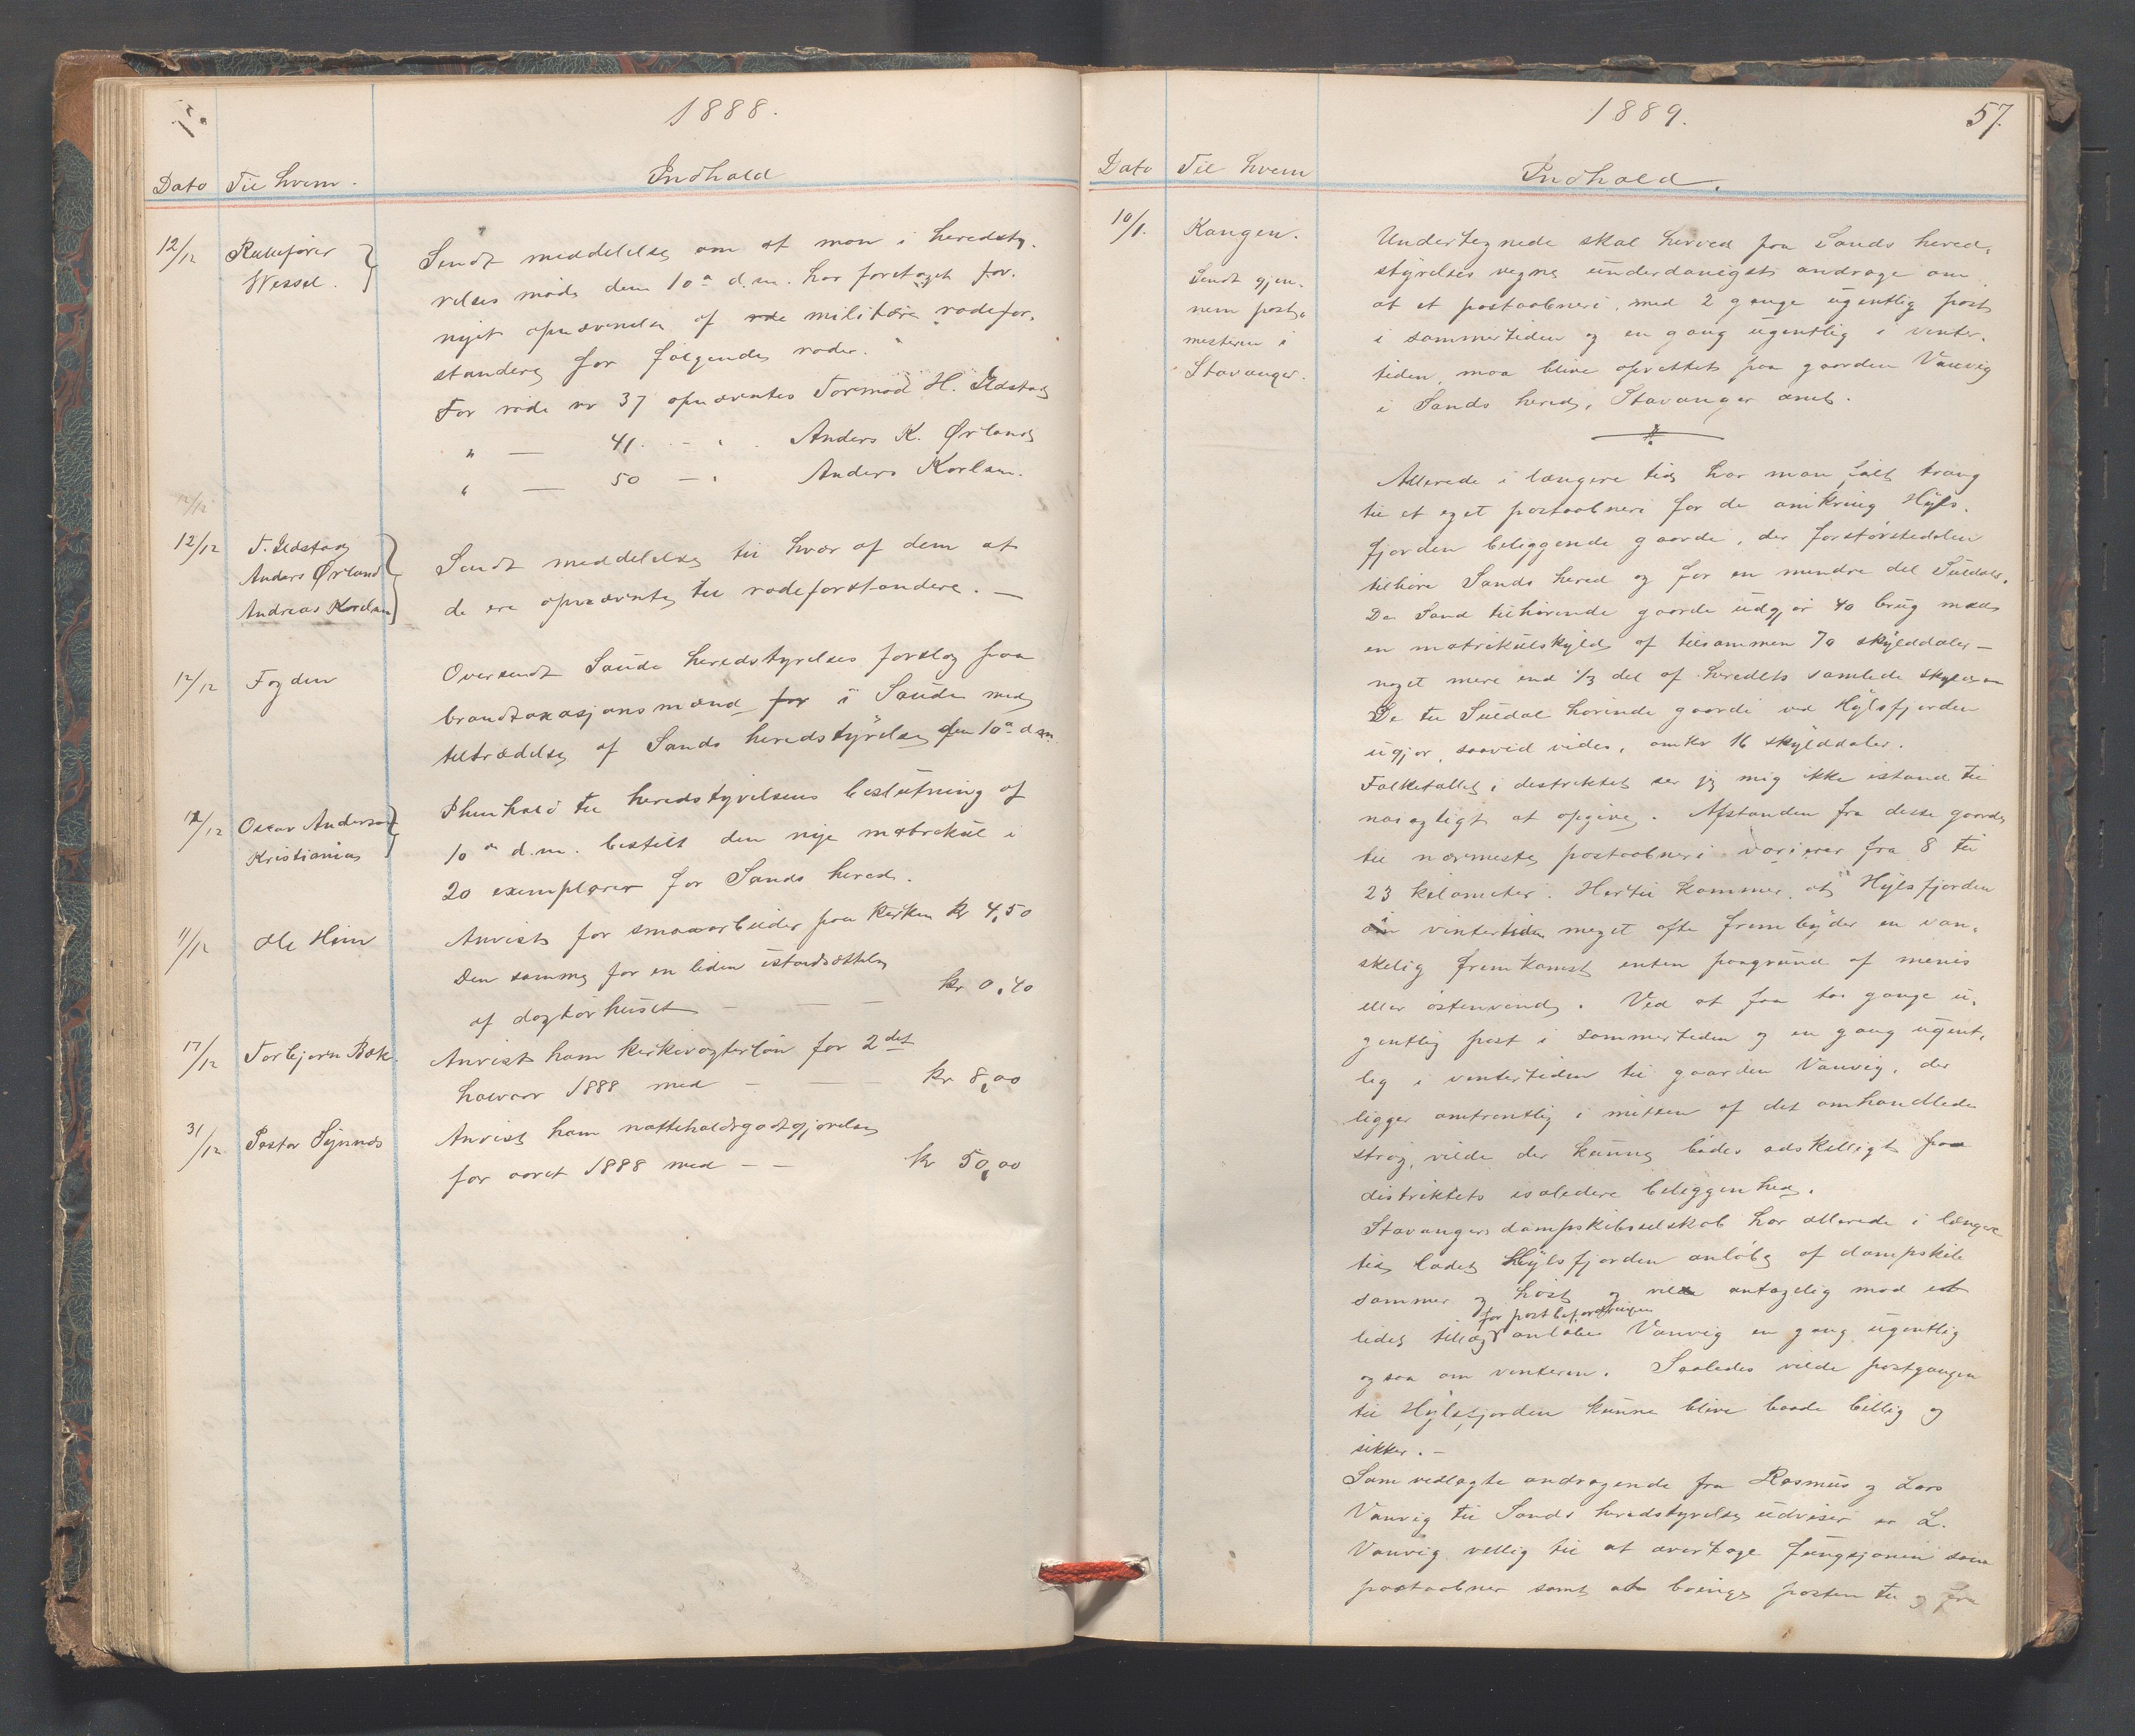 1888.
Dato Til hvem. Indhold
12/12 Rullefører Wessel. Sendt meddelelse om at man i heredsty-
relses møde den 10de d.m. har foretaget for-
nyet opnævnelse af militære rodefor-
standere for følgende roder.
For rode nr 37 opnævntes Tormod H. Ilstad
" — 41. - " Anders K. Ørland
" — 50 - " Anders Korlsen.
12/12
12/12 T. Ilstad
Anders Ørland
Andreas Korlsen
Sendt meddelelse til hver af dem at
de ere opnævnte til rodeforstandere. —
12/12 Fogden Oversendt Saude heredstyrelses forslag paa
brandtaxasjonsmænd for i Saude med
tiltrædelse af Sands heredstyrelse den 10de d.m.
12/12 Oscar Andersen
Kristiania
I henhold til heredstyrelsens beslutning af
10de d.m. bestilt den nye matrekul i
20 exemplarer for Sands hered.
11/12 Ole Heim Anvist for smaaarbeider paa kirken kr 4,50
Den samme for en liden istandsættelse
af doktorhuset — — — kr 0,40
17/12 Torbjørn Bak. Anvist ham kirkevogterløn for 2det
halvaar 1888 med — — kr 8,00
31/12 Pastor Synnes Anvist ham natteholdsgodtgjørelse
for aaret 1888 med — — kr 50,00
1889. 57.
Dato Til hvem Indhold.
10/1. Kongen.
Sendt gjen-
nem post-
mesteren i
Stavanger.
Undertegnede skal herved paa Sands hered-
styrelses vegne underdanigst andrage om
at et postaabneri, med 2 gange ugentlig post
i sommertiden og en gang ugentlig i vinter-
tiden, maa blive oprettet paa gaarden Vanvig
i Sands hered, Stavanger amt.
Allerede i længere tid har man følt trang
til et eget postaabneri for de omkring Hyls-
fjorden beliggende gaarde, der forstørstedelen
tilhøre Sands hered og for en mindre del Suldals.
De Sand tilhørende gaarde udgjør 40 brug med
en matrikulskyld af tilsammen 70 skylddaler —
noget mere end 1/3 del af heredets samlede skyld
De til Suldal hørende gaarde ved Hylsfjorden
ugjør, saavid vides, omkr 16 skylddaler.
Folketallet i destriktet ser jeg mig ikke istand til
nøiagtigt at opgive. Afstanden fra disse gaarde
til nærmeste postaabneri varierer fra 8 til
23 kilometer. Hertil kommer at Hylsfjorden
i vintertiden meget ofte frembyder en van-
skelig fremkomst enten paagrund af menis
eller østenvind. Ved at faa to gange u-
gentlig post i sommertiden og en gang ugent-
lig i vintertiden til gaarden Vanvig, der
ligger omtrentlig i midten af det omhandlede
strøg, vilde der kunne bødes adskilligt paa
distriktets isoledere beliggenhed.
Stavangers dampskibsselskab har allerede i længere
tid ladet Hylsfjorden anløbe af dampskib
sommer og høst og vilde antagelig mod et
for postbefordringen
lidet tillæg anløbe Vanvig en gang ugentlig
ogsaa om vinteren. Saaledes vilde postgangen
til Hylsfjorden kunne blive baade billig og
sikker. —
Som vedlagte andragende fra Rasmus og Lars
Vanvig til Sands heredstyrelse udviser er L.
Vanvig villig til at overtage fungsjonen som
postaabner samt at bringe posten til og fra